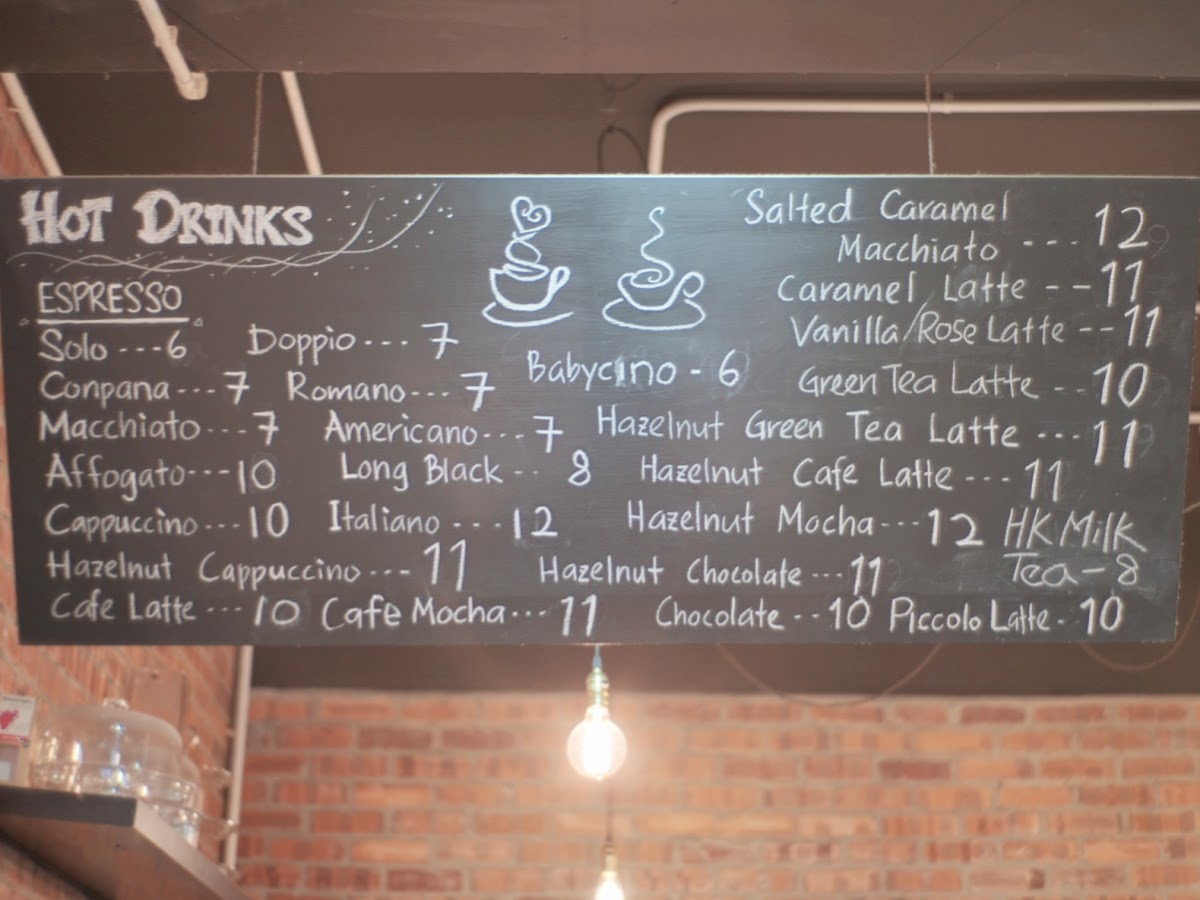 HOT DRINKS
ESPRESSO
Solo ---6 Doppio --- 7
Conpana --- 7 Romano --- 7
Macchiato --- 7 Americano --- 7
Affogato --- 10 Long Black -- 8
Cappuccino --- 10 Italiano ---- 12
Hazelnut Cappuccino --- 11
Cafe Latte --- 10 Cafe Mocha --- 11
Babycino - 6
Salted Caramel
Macchiato --- 12
Caramel Latte -- 11
Vanilla/Rose Latte -- 11
Green Tea Latte -- 10
Hazelnut Green Tea Latte --- 11
Hazelnut Cafe Latte --- 11
Hazelnut Mocha --- 12
Hazelnut Chocolate --- 11
Chocolate -- 10
HK Milk
Tea - 8
Piccolo Latte - 10